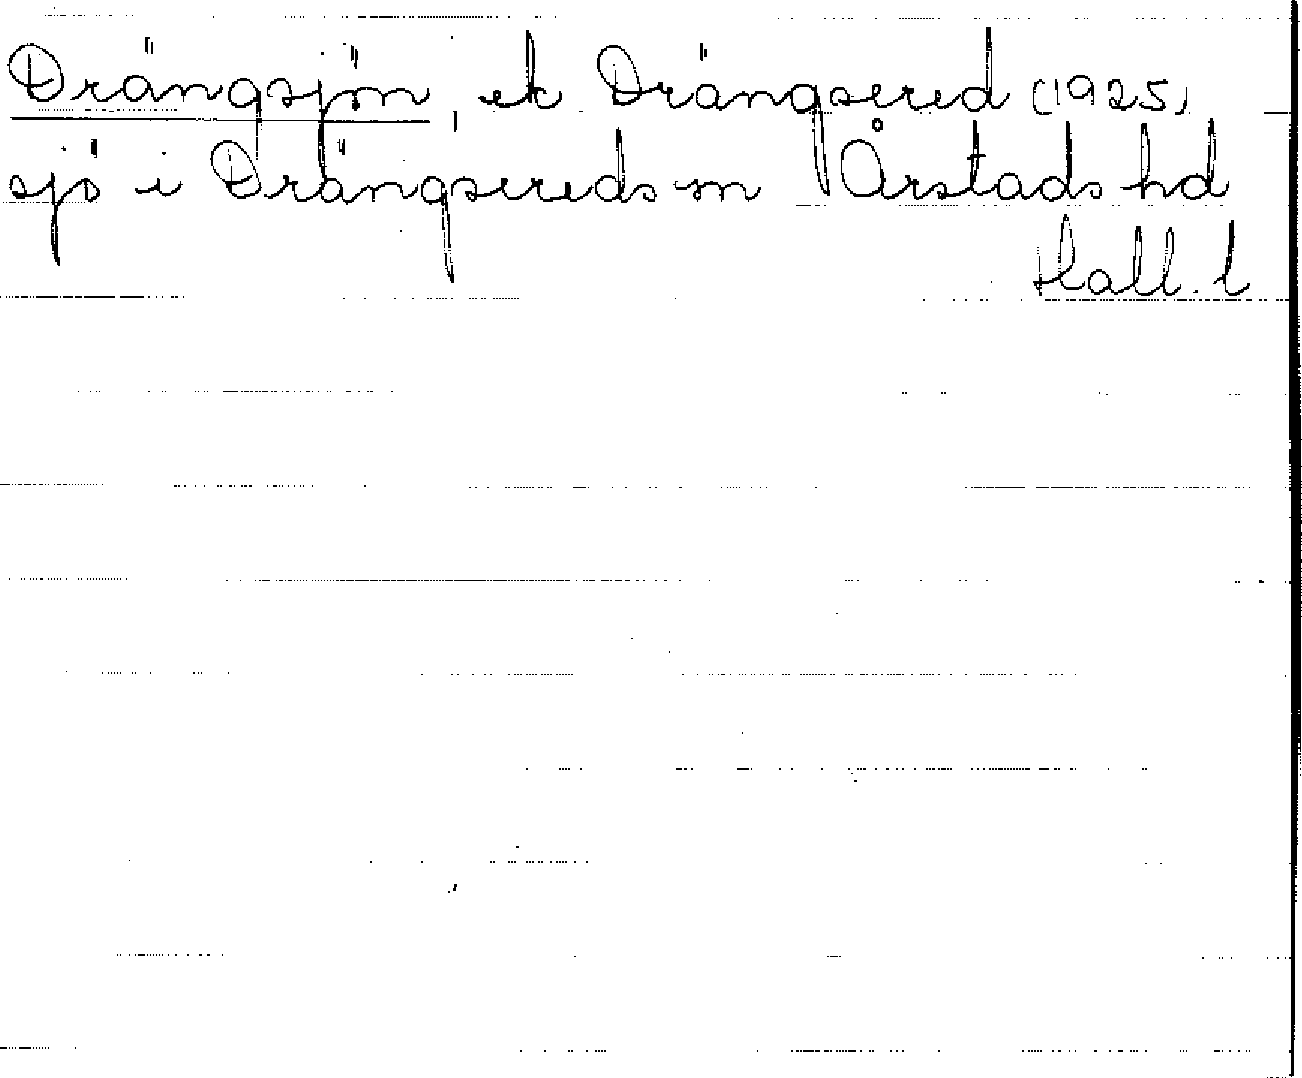 Drängsjön, ek Drängsered (1925)
sjö i Drängsereds sn Årstads hd
Hall. l